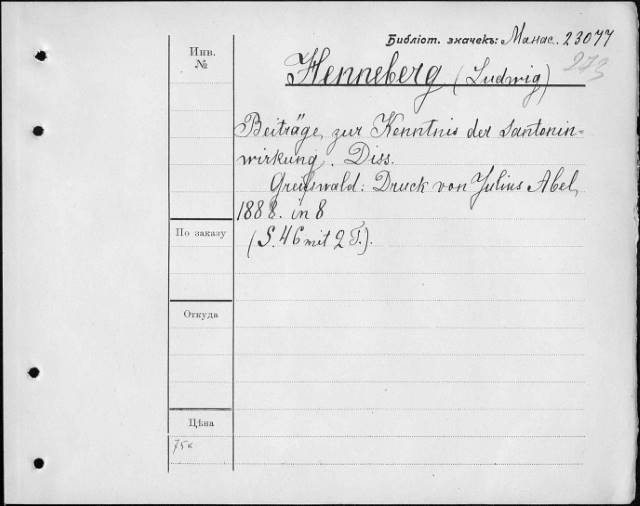 Библіот. значекъ: Манас. 23077
273
Инв.
№
Henneberg (Ludwig)
Beiträge zur Kenntnis der Santonin-
wirkung. Diss.
Greifswald: Druck von Julius Abel,
1888. in 8
(S. 46 mit 2 T.).
По заказу
Откуда
Цѣна
75к